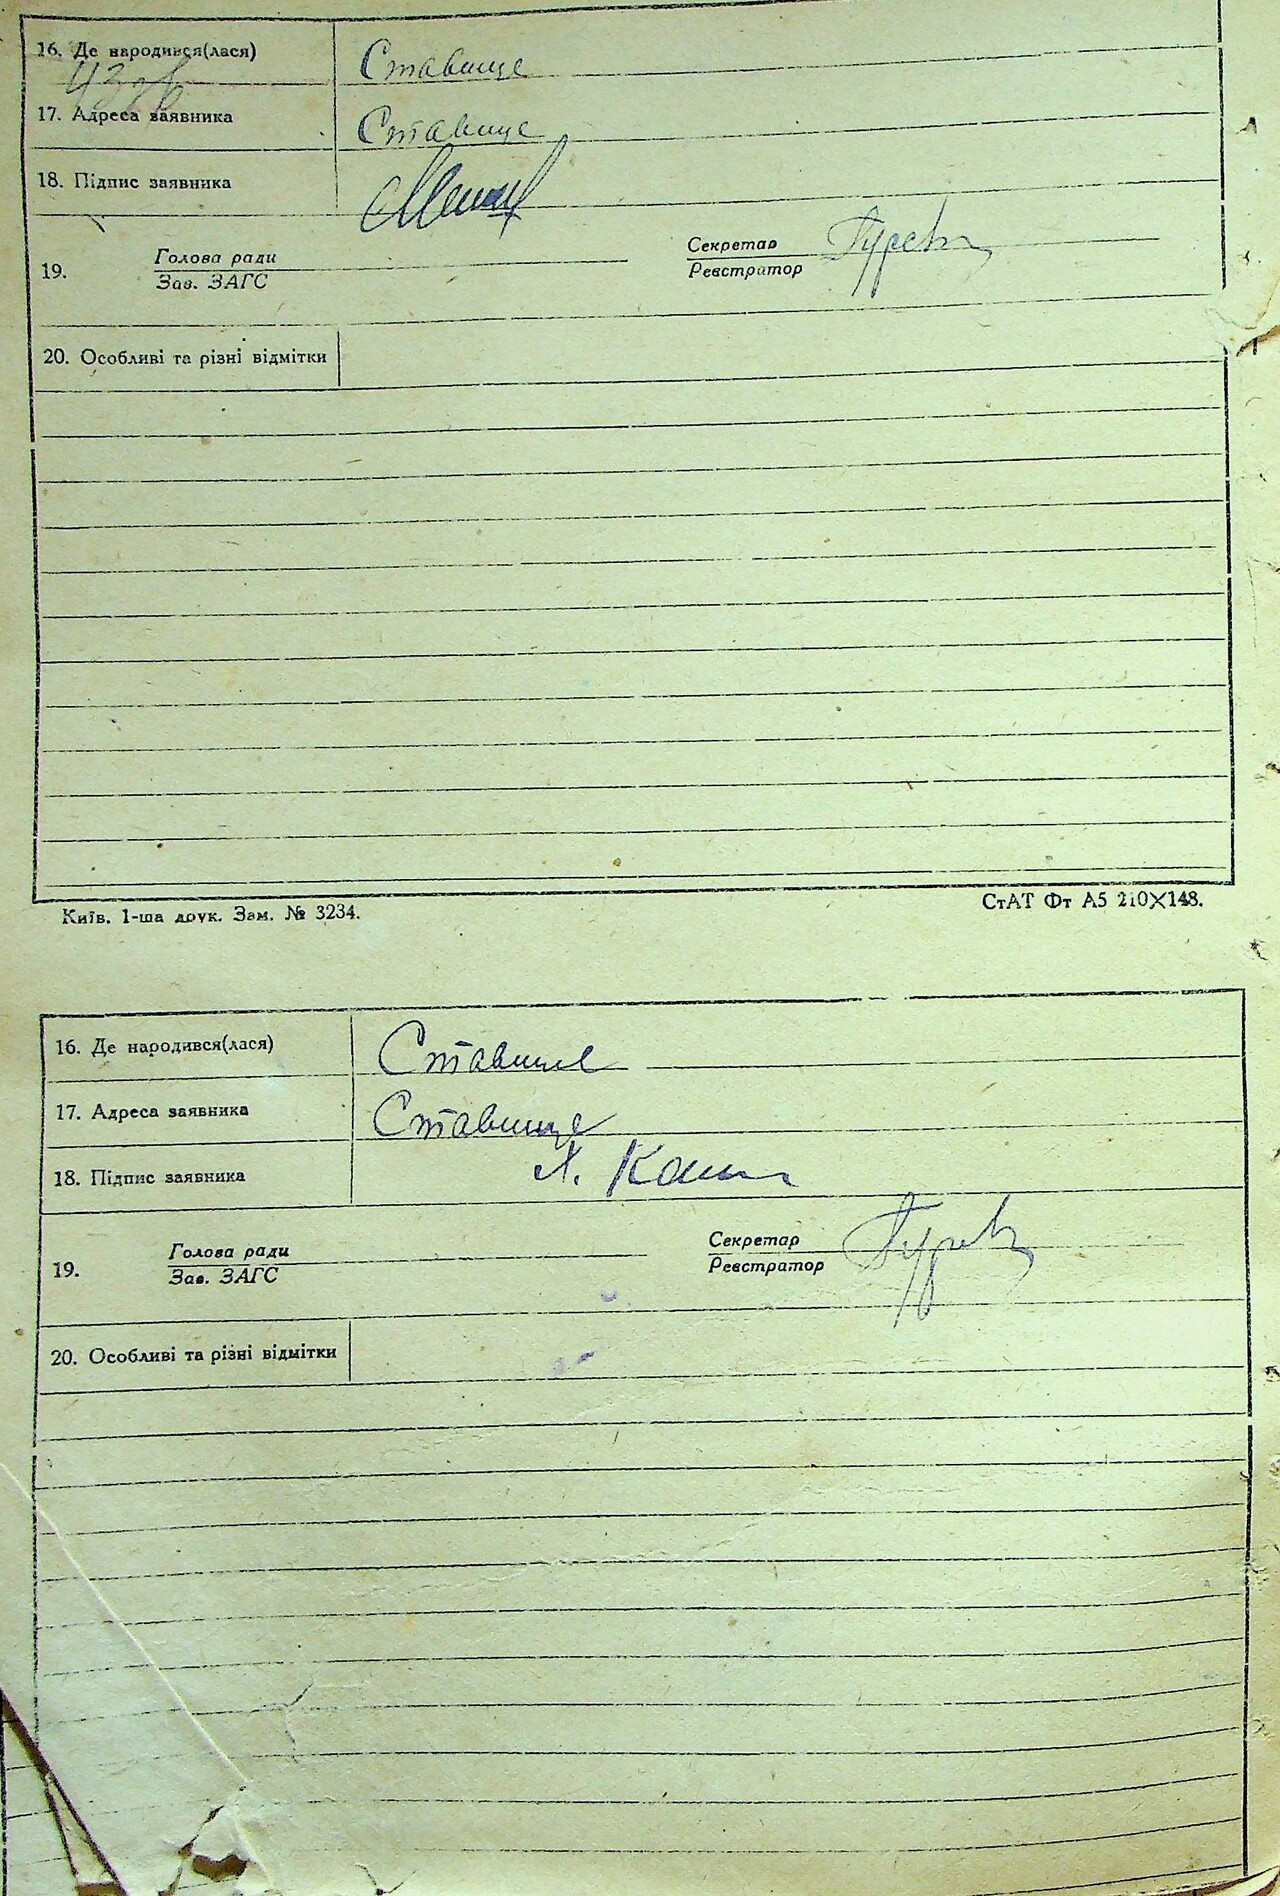 16. Де народився(лася) Ставище
17. Адреса заявника Ставище
18. Підпис заявника
Голова ради Секретар
19. Зав. ЗАГС Реєстратор
20. Особливі та різні відмітки
Київ. 1-ша друк. Зам. № 3234. СтАТ Фт А5 210×148.
16. Де народився(лася) Ставище
17. Адреса заявника Ставище
18. Підпис заявника
Голова ради Секретар
19. Зав. ЗАГС Реєстратор
20. Особливі та різні відмітки